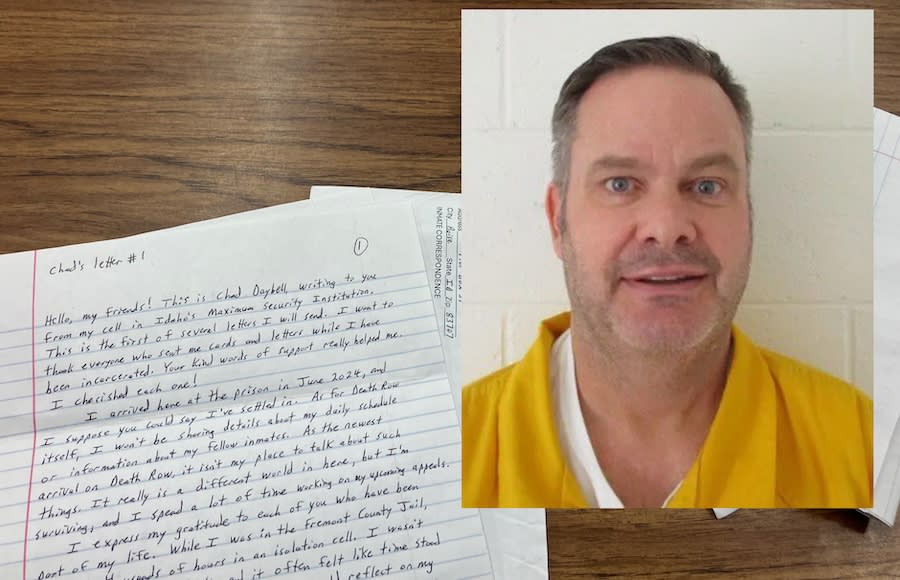 Chad's letter #1
1
Hello, my friends! This is Chad Daybell writing to you
from my cell in Idaho's Maximum Security Institution.
This is the first of several letters I will send. I want to
thank everyone who sent me cards and letters while I have
been incarcerated. Your kind words of support really helped me.
I cherished each one!
I arrived here at the prison in June 2024, and
I suppose you could say I've settled in. As for Death Row
itself, I won't be sharing details about my daily schedule
or information about my fellow inmates. As the newest
arrival on Death Row, it isn't my place to talk about such
things. It really is a different world in here, but I'm
surviving, and I spend a lot of time working on my upcoming appeals.
I express my gratitude to each of you who have been
part of my life. While I was in the Fremont County Jail,
of hours in an isolation cell. I wasn't
it often felt like time stood
reflect on my
City Boise State Id Zip 83707
INMATE CORRESPONDENCE